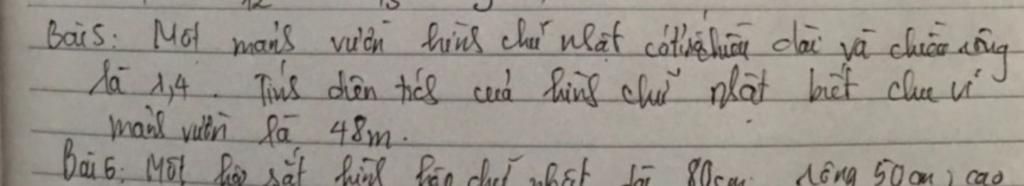 Bài 5: Một mảnh vườn hình chữ nhật có chiều dài và chiều rộng
là 1,4. Tính diện tích của hình chữ nhật biết chu vi
mảnh vườn là 48m.
Bài 6: Một sắt hình chữ nhật dài 80cm, rộng 50cm, cao